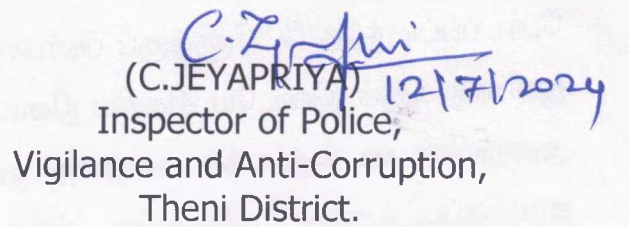 (C.JEYAPRIYA) 12/7/2024
Inspector of Police,
Vigilance and Anti-Corruption,
Theni District.